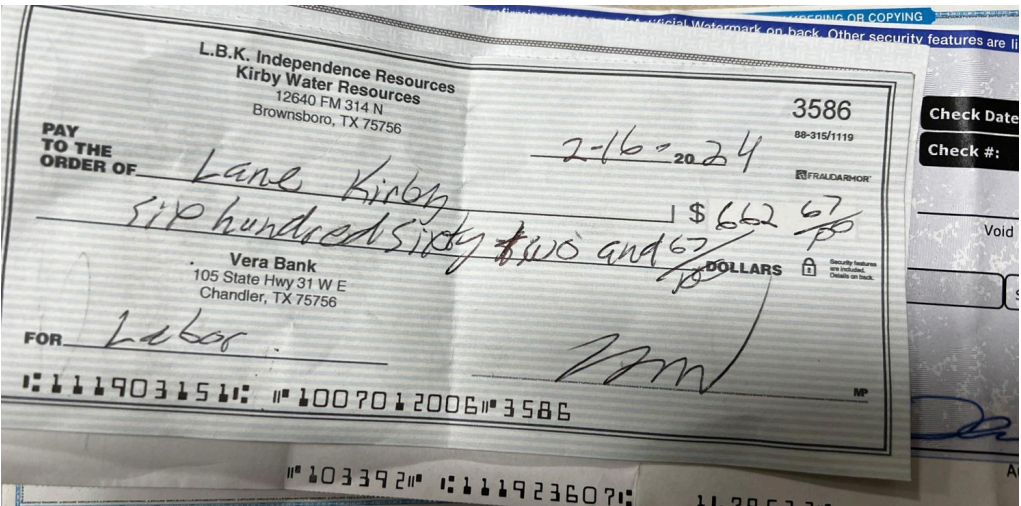 Artificial Watermark on back. Other security features are li
OR COPYING
L.B.K. Independence Resources
Kirby Water Resources
12640 FM 314 N
Brownsboro, TX 75756
3586
88-315/1119
2-16- 2024
FRAUDARMOR
PAY
TO THE
ORDER OF Lane Kirby
$ 662 67/00
six hundred sixty two and 67/00 DOLLARS
Security features
are included.
Details on back.
Vera Bank
105 State Hwy 31 W E
Chandler, TX 75756
FOR Labor
MP
⑆111903151⑆ ⑈1007012006⑈3586
Check Date
Check #:
Void
⑈103392⑈ ⑆111923607⑆